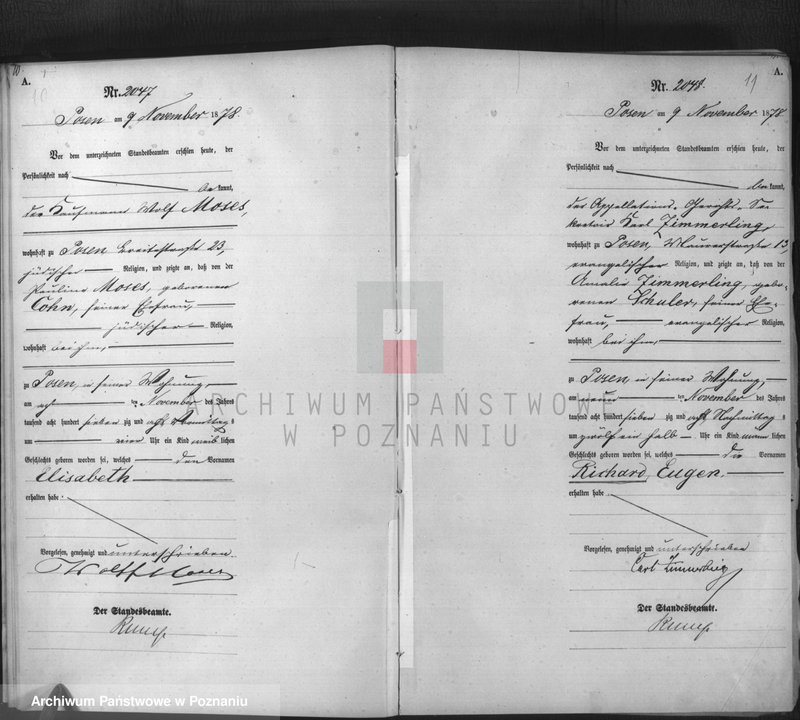 10
A.
Nr. 2047
Posen am 9 November 1878
Vor dem unterzeichneten Standesbeamten erschien heute, der
Persönlichkeit nach
bekannt,
der Kaufmann Wolf Moses,
wohnhaft zu Posen Breitestraße 23,
jüdischer Religion, und zeigte an, daß von der
Pauline Moses, geborenen
Cohn, seiner Ehefrau,
jüdischer Religion,
wohnhaft bei ihm,
zu Posen, in seiner Wohnung,
am acht ten November des Jahres
tausend acht hundert sieben zig und acht Vormittag s
um vier Uhr ein Kind weib lichen
Geschlechts geboren worden sei, welches den Vornamen
Elisabeth
erhalten habe.
Vorgelesen, genehmigt und unterschrieben
Wolff Moses
Der Standesbeamte.
11
A.
Nr. 2048.
Posen am 9 November 1878
Vor dem unterzeichneten Standesbeamten erschien heute, der
Persönlichkeit nach
bekannt,
der Appellations-Gerichts-Se-
kretair Karl Zimmerling,
wohnhaft zu Posen, Maurerstraße 13,
evangelischer Religion, und zeigte an, daß von der
Amalie Zimmerling, gebo-
renen Schuler, seiner Ehe-
frau, evangelischer Religion,
wohnhaft bei ihm,
zu Posen, in seiner Wohnung,
am neun ten November des Jahres
tausend acht hundert sieben zig und acht Nachmittag s
um zwölf ein halb Uhr ein Kind männ lichen
Geschlechts geboren worden sei, welches die Vornamen
Richard Eugen
erhalten habe.
Vorgelesen, genehmigt und unterschrieben
Carl Zimmerling
Der Standesbeamte.
ARCHIWUM PAŃSTWOWE
W POZNANIU
Archiwum Państwowe w Poznaniu